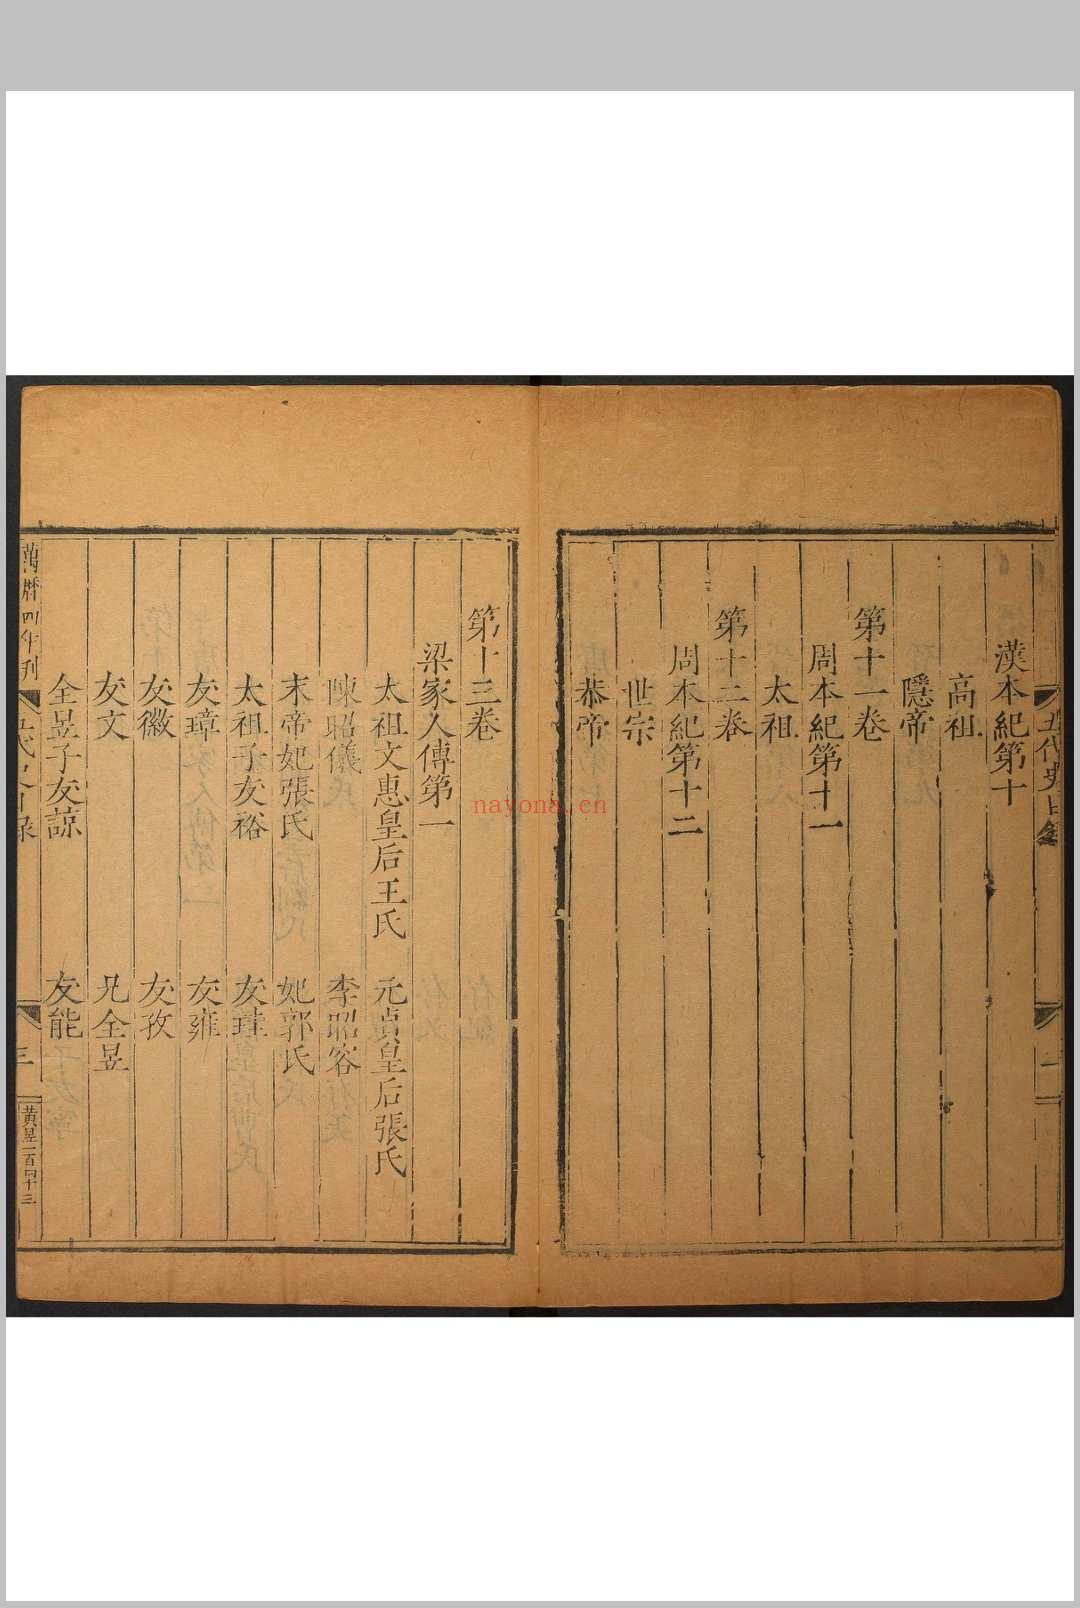 五代史目錄
漢本紀第十
高祖
隱帝
第十一卷
周本紀第十一
太祖
第十二卷
周本紀第十二
世宗
恭帝
第十三卷
梁家人傳第一
太祖文惠皇后王氏 元貞皇后張氏
陳昭儀 李昭容
末帝妃張氏 妃郭氏
太祖子友裕 友珪
友璋 友雍
友徽 友孜
友文 兄全昱
全昱子友諒 友能
萬曆四年刊
三
黃昱一百四十三
nayona.cn